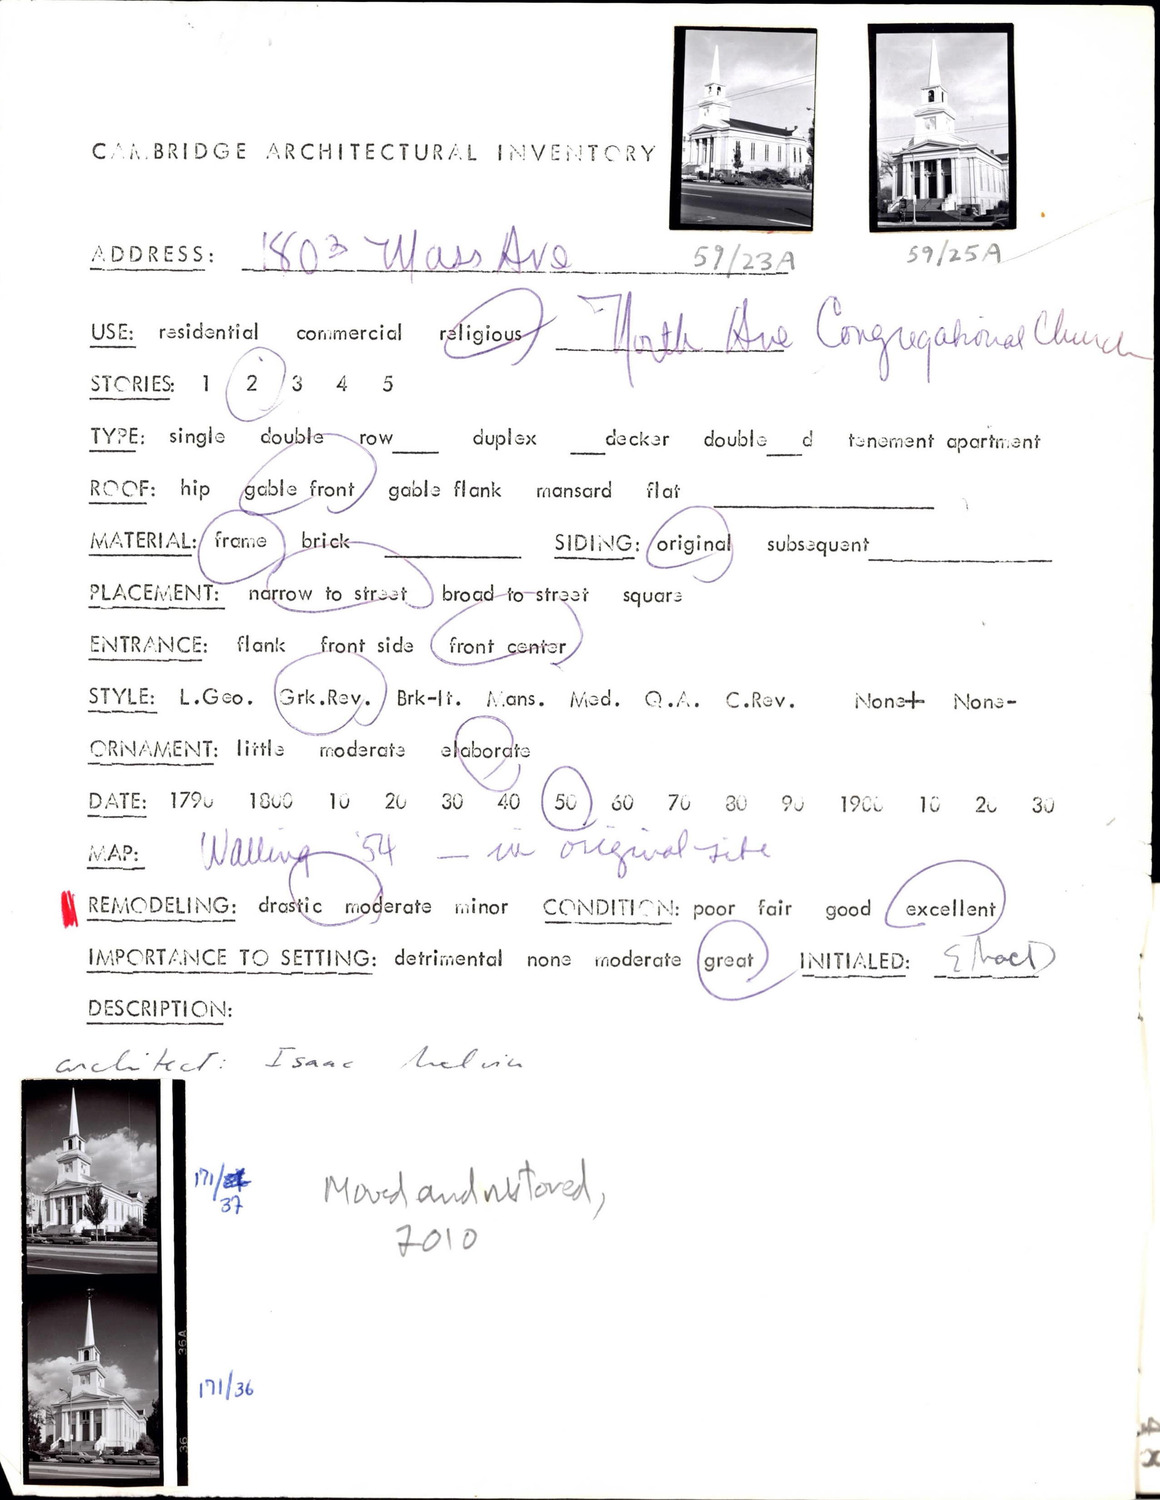 CAMBRIDGE ARCHITECTURAL INVENTORY
ADDRESS: 1803 Mass Ave
59/23A
59/25A
USE: residential commercial religious North Ave Congregational Church
STORIES: 1 2 3 4 5
TYPE: single double row____ duplex ___decker double___d tenement apartment
ROOF: hip gable front gable flank mansard flat
MATERIAL: frame brick SIDING: original subsequent
PLACEMENT: narrow to street broad to street square
ENTRANCE: flank front side front center
STYLE: L.Geo. Grk.Rev. Brk-It. Mans. Med. Q.A. C.Rev. None+ None-
ORNAMENT: little moderate elaborate
DATE: 1790 1800 10 20 30 40 50 60 70 80 90 1900 10 20 30
MAP: Walling '54 — in original site
REMODELING: drastic moderate minor CONDITION: poor fair good excellent
IMPORTANCE TO SETTING: detrimental none moderate great INITIALED:
DESCRIPTION:
architect: Isaac Melvin
171/
37
Moved and restored,
2010
36A
171/36
36